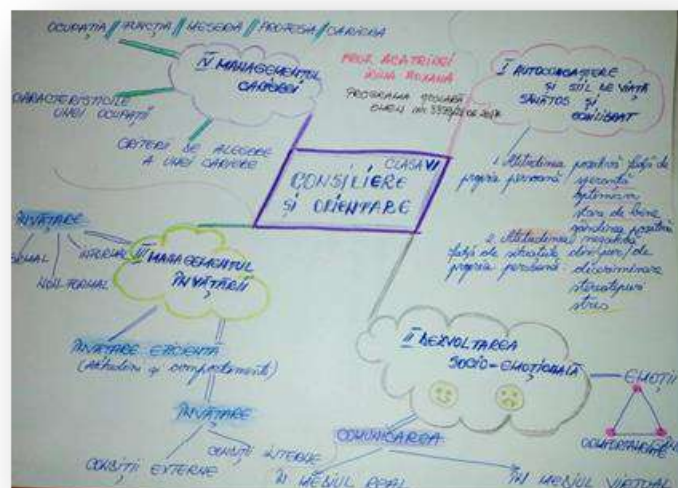 OCUPAȚIA // FUNCȚIA // MESERIA // PROFESIA // CARIERA
IV MANAGEMENTUL
CARIEREI
CARACTERISTICILE
UNEI OCUPAȚII
CRITERII DE ALEGERE
A UNEI CARIERE
PROF. ACATRINEI
IRINA ROXANA
PROGRAMA ȘCOLARĂ
CLASA VI
CONSILIERE
ȘI ORIENTARE
I AUTOCUNOAȘTERE
ȘI STIL DE VIAȚĂ
SĂNĂTOS ȘI
ECHILIBRAT
1. Atitudinea pozitivă față de
propria persoană / speranță
optimism
stare de bine
gândirea pozitivă
2. Atitudinea negativă
față de
propria persoană discriminare
stereotipuri
stres
ÎNVĂȚARE
INFORMAL
NON-FORMAL
III MANAGEMENTUL
ÎNVĂȚĂRII
ÎNVĂȚARE EFICIENTĂ
(Atitudini și comportamente)
ÎNVĂȚARE
CONDIȚII EXTERNE
CONDIȚII INTERNE
II DEZVOLTAREA
SOCIO-EMOȚIONALĂ
EMOȚII
COMUNICAREA
ÎN MEDIUL REAL
ÎN MEDIUL VIRTUAL